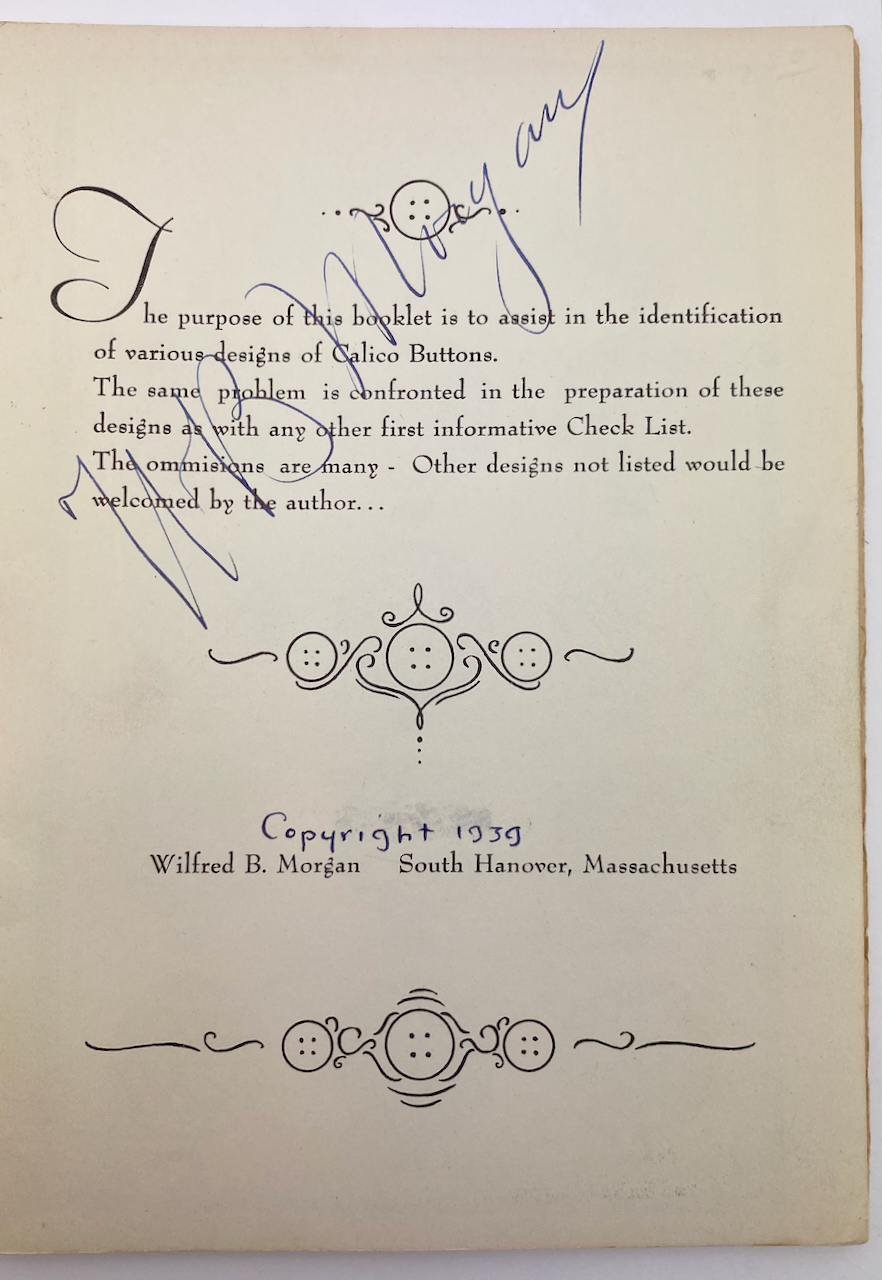 The purpose of this booklet is to assist in the identification
of various designs of Calico Buttons.
The same problem is confronted in the preparation of these
designs as with any other first informative Check List.
The ommisions are many - Other designs not listed would be
welcomed by the author...
W B Morgan
Copyright 1939
Wilfred B. Morgan South Hanover, Massachusetts